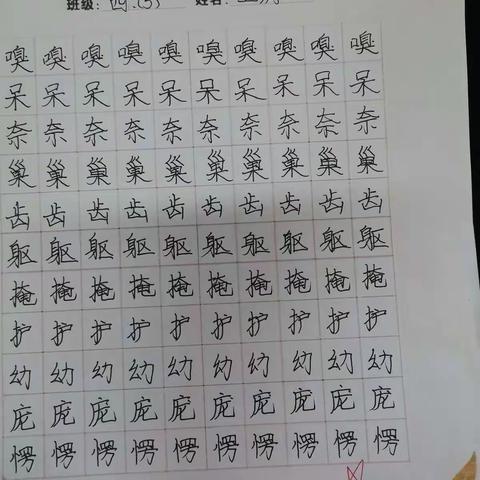 班级：四.(5) 姓名：
嗅嗅嗅嗅嗅嗅嗅嗅嗅嗅
呆呆呆呆呆呆呆呆呆呆
奈奈奈奈奈奈奈奈奈奈
巢巢巢巢巢巢巢巢巢巢
齿齿齿齿齿齿齿齿齿齿
躯躯躯躯躯躯躯躯躯躯
掩掩掩掩掩掩掩掩掩掩
护护护护护护护护护护
幼幼幼幼幼幼幼幼幼幼
庞庞庞庞庞庞庞庞庞庞
愣愣愣愣愣愣愣愣愣愣